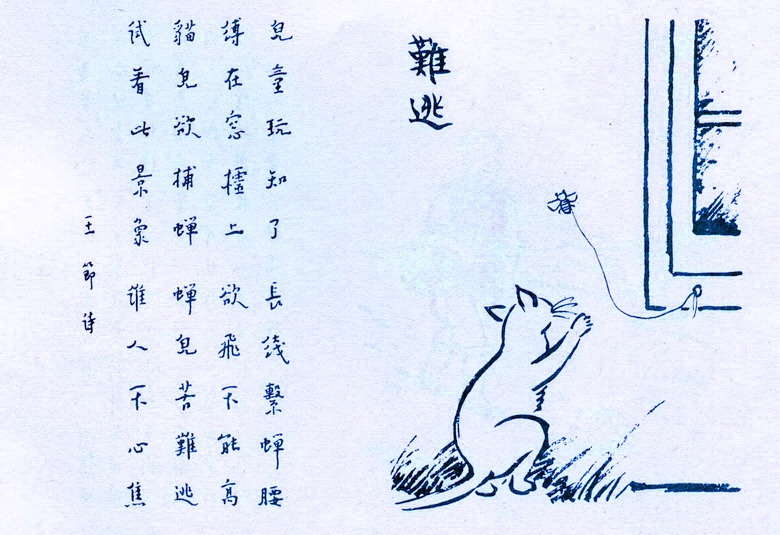 難逃
兒童玩知了 長线繫蝉腰
縛在窓檯上 欲飛不能高
貓兒欲捕蝉 蝉兒苦難逃
試看此景象 誰人不心焦
王節诗